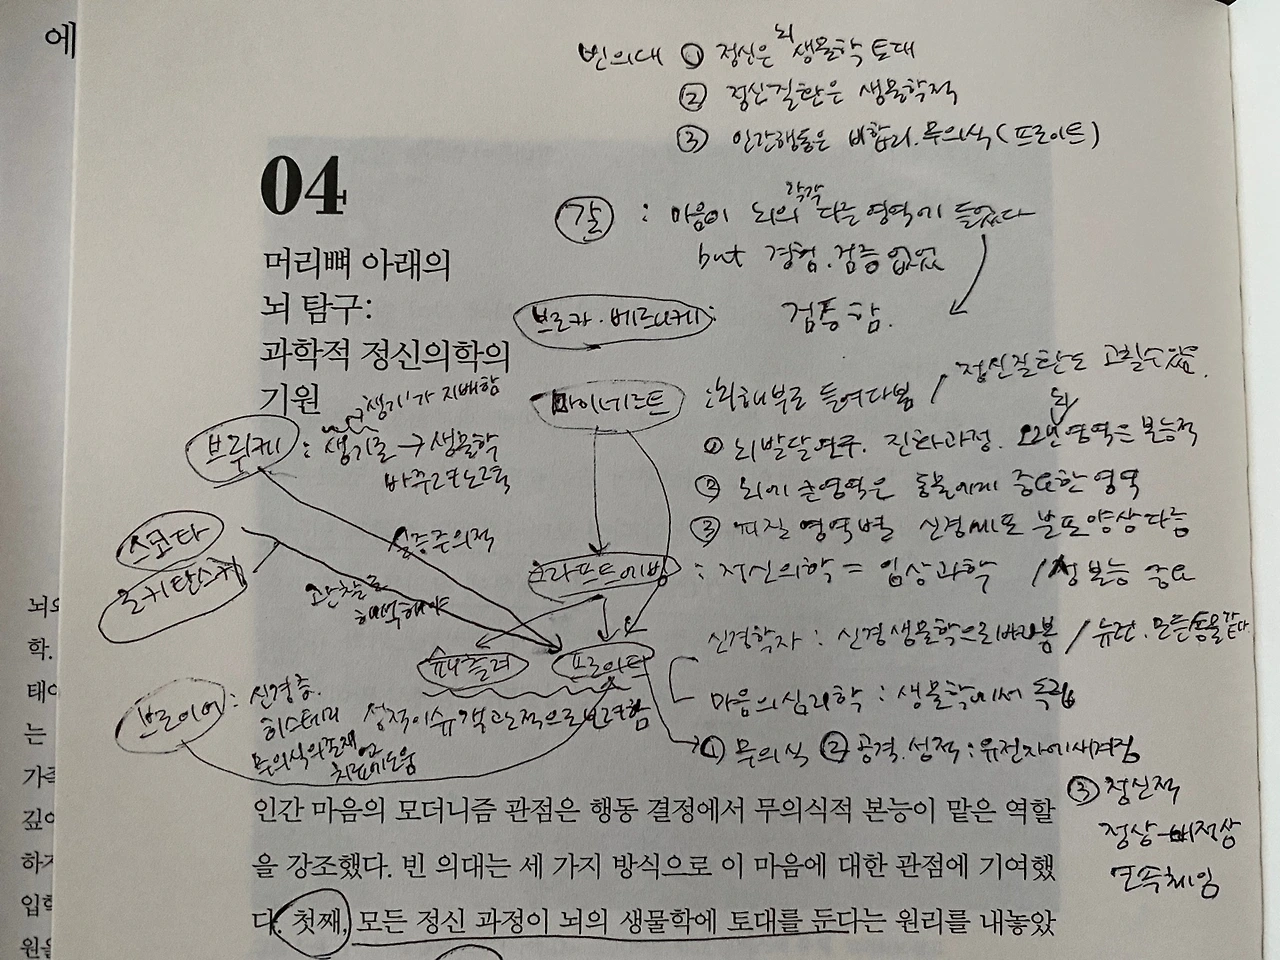 에
빈의대 ① 정신은 뇌 생물학 토대
② 정신질환은 생물학적
③ 인간행동은 비합리.무의식(프로이트)
04
머리뼈 아래의
뇌 탐구:
과학적 정신의학의
기원
갈 : 마음이 뇌의 각각 다른 영역에 들었다
but 경험.검증 없었
브로카·베르니케 : 검증함.
마이네르트 : 뇌해부로 들여다봄 / 정신질환도 고칠수있음.
① 뇌발달연구. 진화과정. 오래된 뇌 영역은 본능적
② 뇌에 큰영역은 동물에게 중요한 영역
③ 피질 영역별 신경세포 분포양상다름
'생기'가 지배함
브뤼케 : 생기론 → 생물학
바꾸려고노력
스코다
로키탄스키
실증주의적
관찰을
해석해야
크라프트에빙 : 정신의학 = 임상과학 / 성본능 중요
슈니츨러
프로이트
신경학자 : 신경생물학으로바라봄 / 뉴런.모든동물같다.
마음의심리학 : 생물학에서 독립
① 무의식 ② 공격.성적 : 유전자에새겨짐
③ 정신적
정상-비정상
연속체임
브로이어 : 신경증.
히스테리
무의식의존재
치료에도움
성적이슈 객관적으로
인간 마음의 모더니즘 관점은 행동 결정에서 무의식적 본능이 맡은 역할
을 강조했다. 빈 의대는 세 가지 방식으로 이 마음에 대한 관점에 기여했
다. 첫째, 모든 정신 과정이 뇌의 생물학에 토대를 둔다는 원리를 내놓았
뇌의
학.
태어
는
가족
깊이
하지
입학
원을